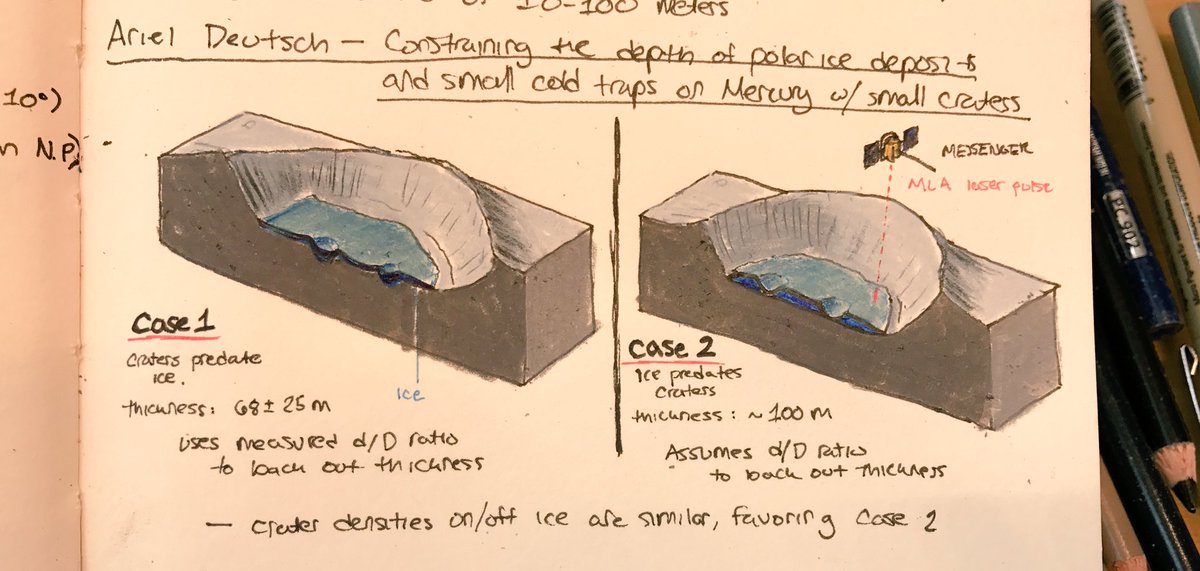 10-100 meters
Ariel Deutsch — Constraining the depth of polar ice deposits
and small cold traps on Mercury w/ small craters
10°)
n N.P)
-
MESSENGER
MLA laser pulse
Case 1
Craters predate
ice.
thickness: 68 ± 25 m
Uses measured d/D ratio
to back out thickness
ice
Case 2
Ice predates
craters
thickness: ~100 m
Assumes d/D ratio
to back out thickness
— Crater densities on/off ice are similar, favoring Case 2
PC 902